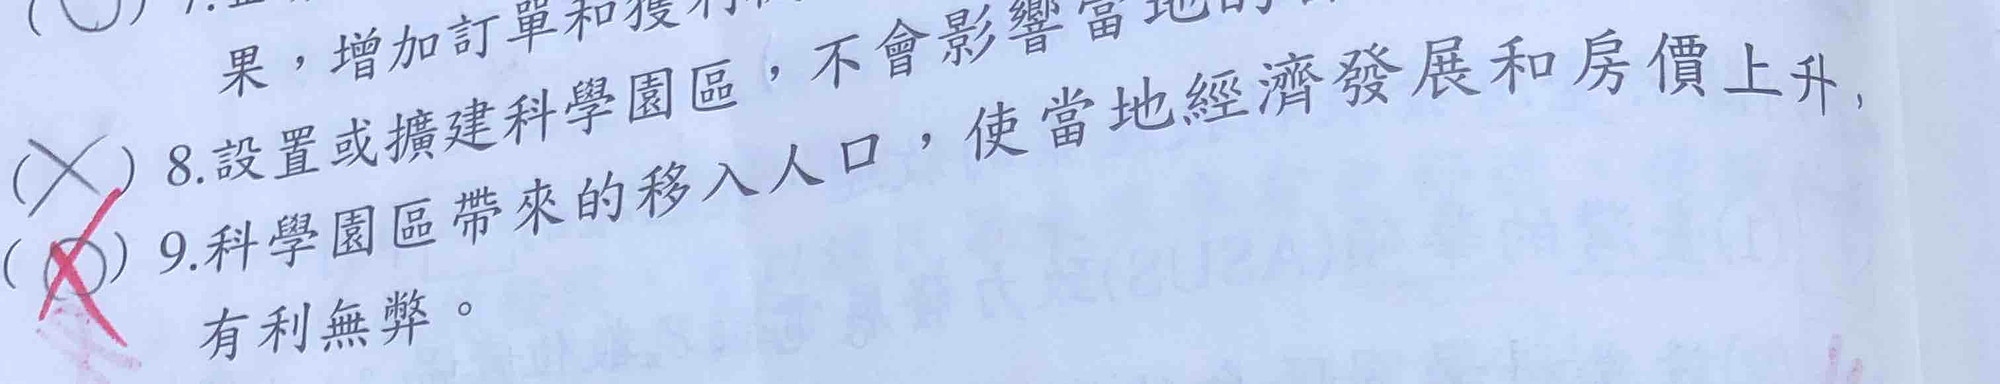 果，增加訂單和獲利
(×) 8.設置或擴建科學園區，不會影響當地的
(○) 9.科學園區帶來的移入人口，使當地經濟發展和房價上升，
有利無弊。